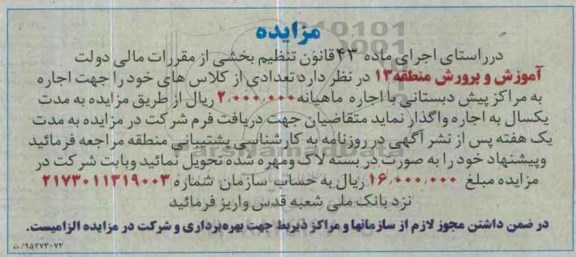 مزایده
در راستای اجرای ماده ۴۳ قانون تنظیم بخشی از مقررات مالی دولت
آموزش و پرورش منطقه ۱۳ در نظر دارد تعدادی از کلاس های خود را جهت اجاره
به مراکز پیش دبستانی با اجاره ماهیانه ۲,۰۰۰,۰۰۰ ریال از طریق مزایده به مدت
یکسال به اجاره واگذار نماید متقاضیان جهت دریافت فرم شرکت در مزایده به مدت
یک هفته پس از نشر آگهی در روزنامه به کارشناسی پشتیبانی منطقه مراجعه فرمائید
وپیشنهاد خود را به صورت در بسته لاک ومهره شده تحویل نمائید وبابت شرکت در
مزایده مبلغ ۱۶,۰۰۰,۰۰۰ ریال به حساب سازمان شماره ۲۱۷۳۰۱۱۳۱۹۰۰۳
نزد بانک ملی شعبه قدس واریز فرمائید
در ضمن داشتن مجوز لازم از سازمانها و مراکز ذیربط جهت بهره برداری و شرکت در مزایده الزامیست.
۹۵۲۷۳۰۷۲/ت